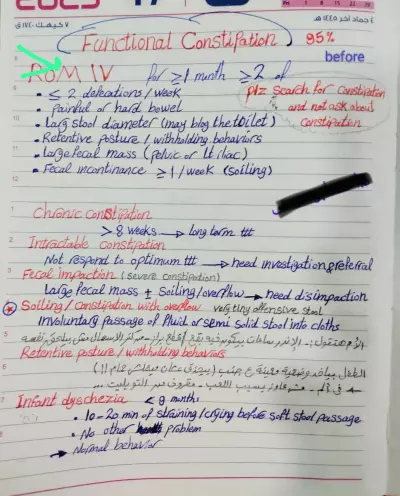 2023 17
PH 1 8 15 22 29
٧ كيهك ١٧٤٠ ق
٤ جماد آخر ١٤٤٥ هـ
Functional Constipation 95%
before
RoM IV for ≥ 1 month ≥ 2 of
• ≤ 2 defecations / week
plz search for constipation
and not ask about
constipation
• Painful or hard bowel
• Larg stool diameter (may blog the toilet)
• Retentive posture / withholding behaviors
• Large fecal mass (pelvic or Lt iliac)
• Fecal incontinance ≥ 1 / week (soiling)
Chronic constipation
> 8 weeks → long term ttt
Intractable constipation
Not respond to optimum ttt → need investigation, referral
Fecal impaction (severe constipation)
Large fecal mass ± soiling/overflow → need disimpaction
* Soiling / constipation with overflow very tiny offensive stool
Involuntary passage of fluid or semi solid stool into cloths
Retentive posture / withholding behaviors
Infant dyschezia < 9 months
• 10-20 min of straining / crying before soft stool passage
• No other problem
→ Normal behavior